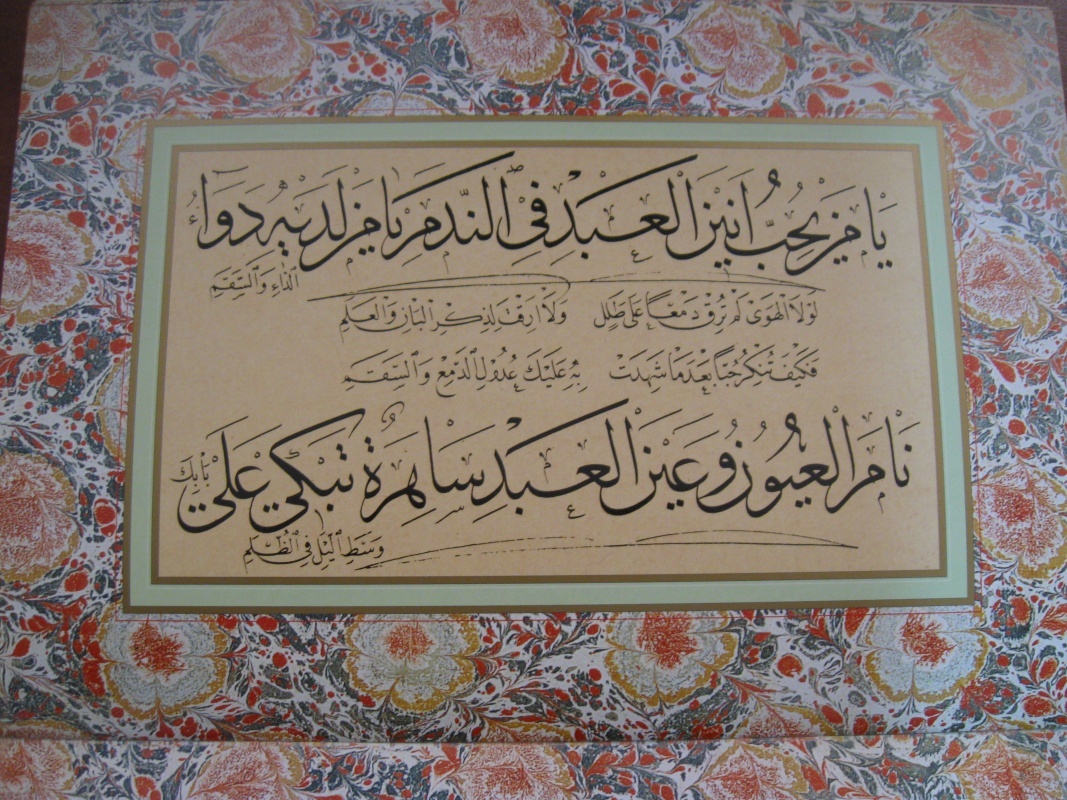 يَا مَنْ يُحِبُّ اَنِينَ الْعَبْدِ فِي النَّدَمِ يَا مَنْ لَدَيْهِ دَوَاءُ
الدَّاءِ وَالسَّقَمِ
لَوْلَا الْهَوَى لَمْ تُرِقْ دَمْعًا عَلَى طَلَلٍ وَلَا اَرِقْتَ لِذِكْرِ الْبَانِ وَالْعَلَمِ
فَكَيْفَ تُنْكِرُ حُبًّا بَعْدَ مَا شَهِدَتْ بِهِ عَلَيْكَ عُدُولُ الدَّمْعِ وَالسَّقَمِ
نَامَ الْعُيُونُ وَعَيْنُ الْعَبْدِ سَاهِرَةٌ تَبْكِي عَلَى بَابِكَ
وَسَطِ اللَّيْلِ فِي الظُّلَمِ